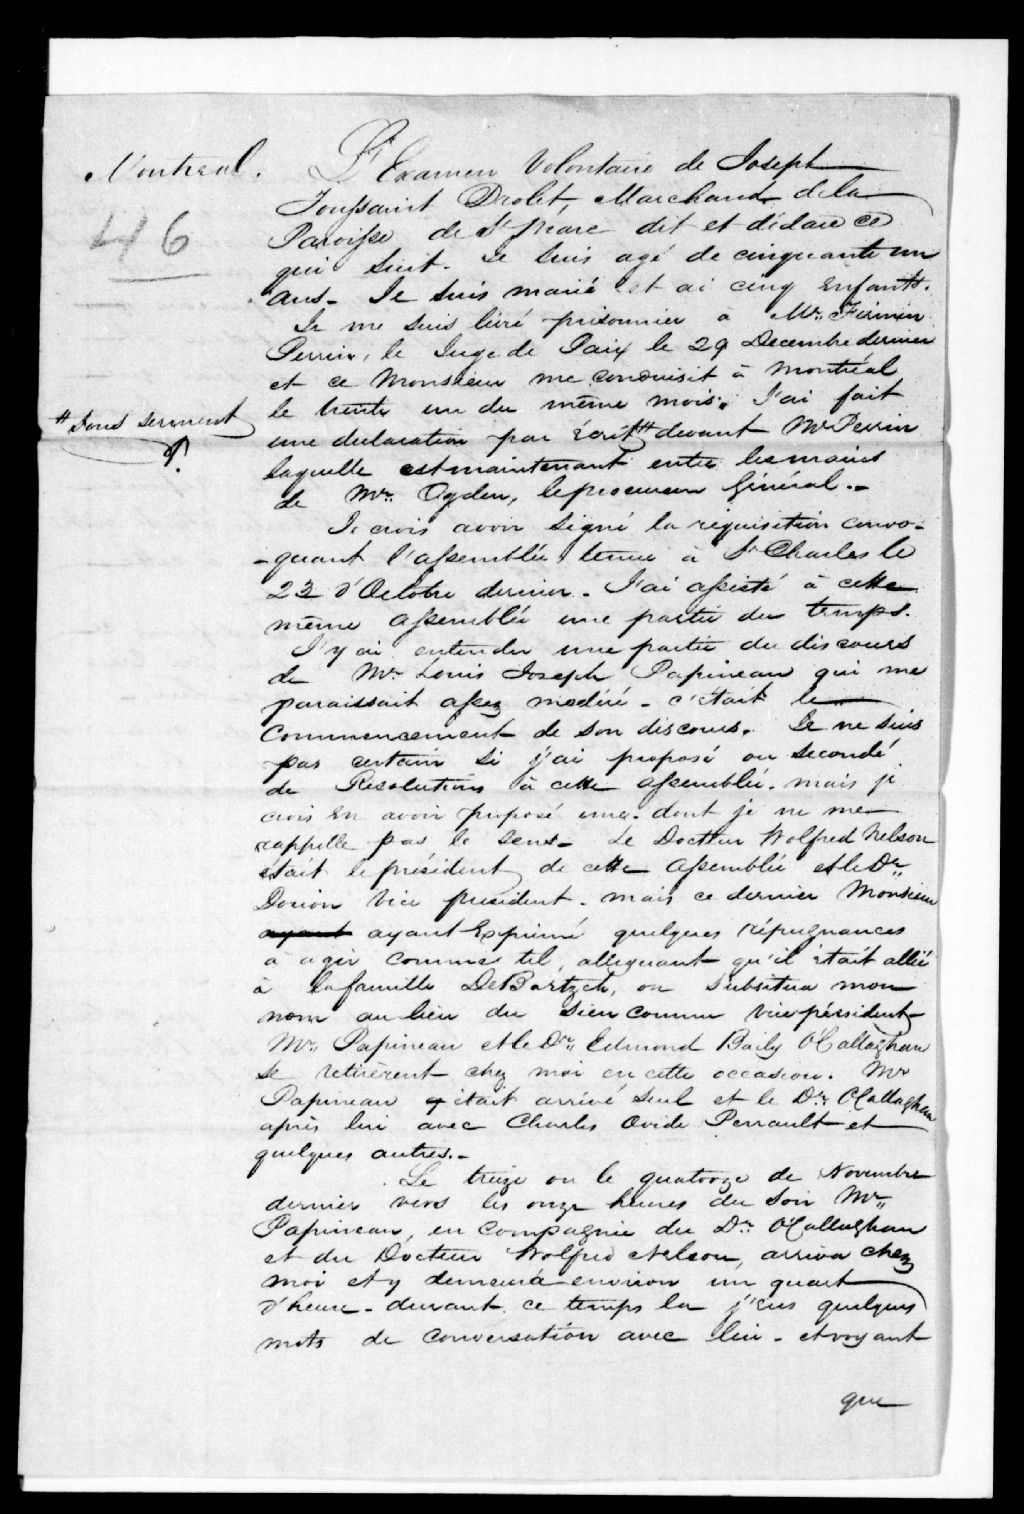 Montreal. L'Examen Volontaire de Joseph
Toussaint Drolet, Marchand, de la
46
Paroisse de St Marc dit et déclare ce
qui suit. Je suis agé de cinquante un
ans_ Je suis marié et ai cinq Enfants.
Je me suis livré prisonnier a Mr. Firmin
Perrin, le Juge de Paix le 29 Decembre dernier
et ce Monsieur me conduisit à Montréal
le trente un du même mois. J'ai fait
# sous serment
une declaration par écrit # devant Mr Perrin
laquelle est maintenant entre les mains
de Mr. Ogden, le procureur Général._
Je crois avoir signé la réquisition convo-
-quant l'assemblée tenue à St Charles le
23 d'Octobre dernier. J'ai assisté à cette
même assemblée une partie du temps.
J'y ai entendu une partie du discours
de Mr Louis Joseph Papineau qui me
paraissait assez modéré_ c'était le
Commencement de son discours. Je ne suis
pas certain si j'ai proposé ou secondé
de Resolutions à cette assemblée. mais je
crois en avoir proposé une. dont je ne me
rappelle pas le sens_ Le Docteur Wolfred Nelson
était le président de cette assemblée et le Dr.
Dorion Vice president. mais ce dernier Monsieur
ayant ayant Exprimé quelques répugnances
à agir comme tel, alleguant qu'il était allié
à la famille DeBartzch, on subsitua mon
nom au lieu du sien comme vice président
Mr. Papineau et le Dr. Edmond Baily O'Callaghan
se retirèrent chez moi en cette occasion. Mr
Papineau y était arrivé seul et le Dr. O'Callaghan
après lui avec Charles Ovide Perrault et
quelques autres._
Le treize ou le quatorze de Novembre
dernier vers les onze heures du soir Mr.
Papineau, en compagnie du Dr. O'Callaghan
et du Docteur Wolfred Nelson, arriva chez
moi et y demeura environ un quart
d'heure_ durant ce temps la j'eus quelques
mots de conversation avec lui_ et voyant
que